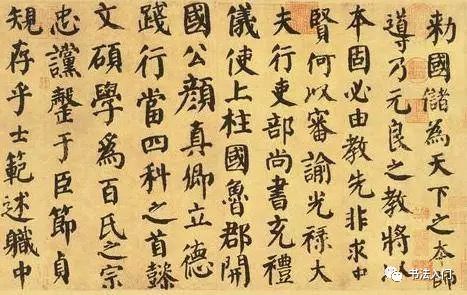 勅國儲為天下之本師
導乃元良之教將以
本固必由教先非求中
賢何以審諭光祿大
夫行吏部尚書充禮
儀使上柱國魯郡開
國公顏真卿立德
踐行當四科之首懿
文碩學爲百氏之宗
忠讜罄于臣節貞
規存乎士範述職中
书法入门